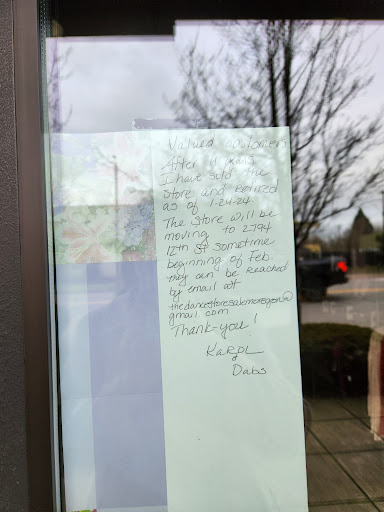 Valued customers
After 11 years
I have sold the
store and retired
as of 1-24-24.
The store will be
moving to 2794
12th St sometime
beginning of feb.
they can be reached
by email at
thedancestoresalemoregon@
gmail.com
Thank-you!
Karol
&
Dabs